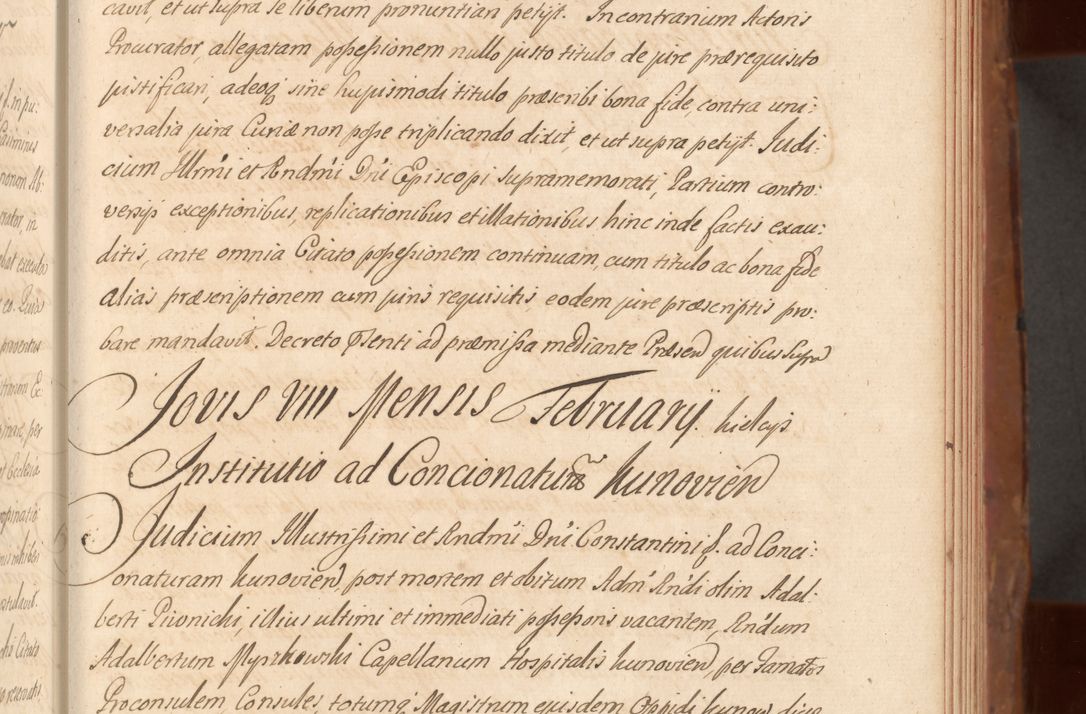 cavit, et ut supra se liberum pronuntiari petijt. In contrarium Actoris
Procurator, allegatam possessionem nullo justo titulo de jure præ requisito
justificari, adeoq; sine hujusmodi titulo præscribi bona fide, contra uni:
versalia jura Curiæ non posse triplicando dixit, et ut supra petijt. Judi:
cium Illrm̃i et Rndm̃i Dñi Episcopi supramemorati, Partium contro:
versijs exceptionibus, replicationibus et illationibus hinc inde factis exau:
ditis, ante omnia Citato possessionem continuam, cum titulo ac bona fide
alias præscriptionem cum juris requisitis, eodem jure præscriptis pro:
bare mandavit. Decreto p̃senti ad præmissa mediante Præsen quibus supra
Jovis VIII Mensis Februarij. Kielcijs
Institutio ad Concionaturã Kunovien
Judicium Illustrissimi et Rndm̃i Dñi Constantini f. ad Conci:
onaturam Kunovien, post mortem et obitum Adm̃ Rñdi olim Adal:
berti Piionichi, illius ultimi et immediati possessoris vacantem, Rñdum
Adalbertum Myszkowski Capellanum Hospitalis Kunovien, per Famatos
Proconsulem Consules, totumq; Magistrum ejusdem Oppidi Kunow